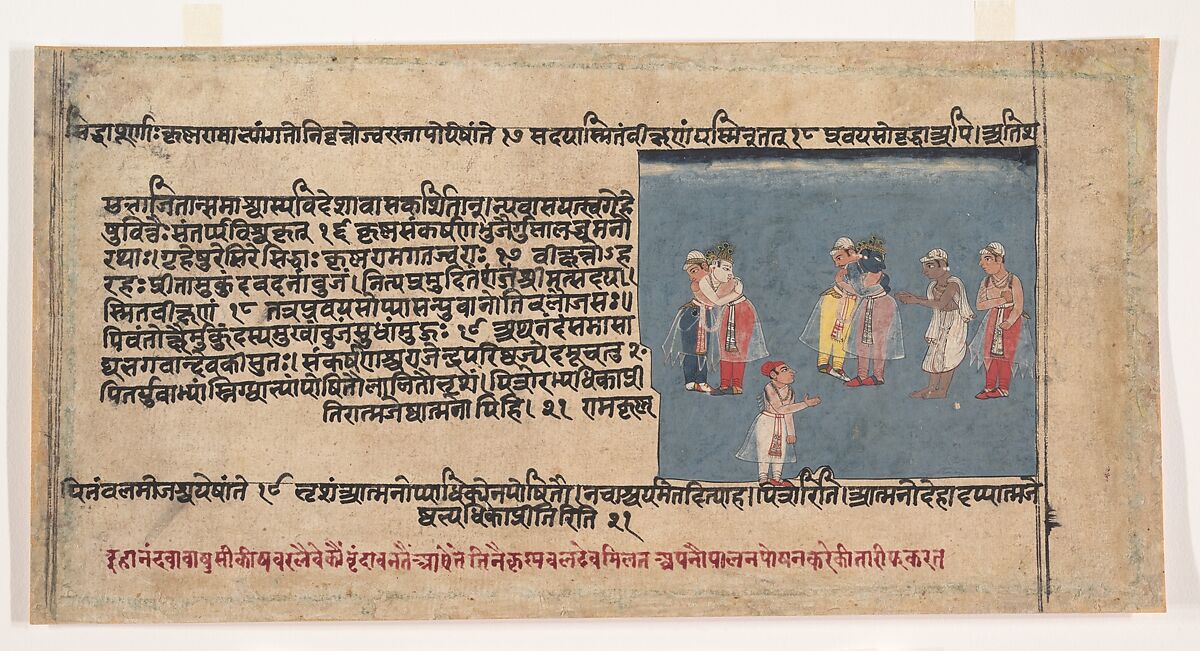 सिद्धाःपूर्णाः कृष्णरामाभ्यांगतोनिवृत्तोज्वरस्तापोयेषांते १७ सदयस्मितंवीक्षणंयस्मिन्तत् १८ प्रवयसोवृद्धाअपि।अतिश
समाश्वास्यविदेशावासकर्शितान्।न्यवासयत्स्वगेहे
षुवित्तैःसंतर्प्यविश्वकृत् १६ कृष्णसंकर्षणभुजैर्गुप्तालब्धमनो
रथाः।गृहेषुरेमिरेसिद्धाःकृष्णरामगतज्वराः १७ वीक्षंतोऽह
रहःप्रीतामुकुंदवदनांबुजं।नित्यंप्रमुदितंश्रीमत्सदय।
स्मितवीक्षणं १८ तत्रप्रवयसोप्यासन्युवानोतिबलौजसः॥
पिबंतोक्षैर्मुकुंदस्यमुखांबुजसुधांमुहुः १९ अथनंदंसमासा
द्यभगवान्देवकीसुतः।संकर्षणश्चराजेन्द्रपरिष्वज्येदमूचतुः २०
पितर्युवाभ्यांस्निग्धाभ्यांपोषितौलालितौभृशं।पित्रोरभ्यधिकाप्री
तिरात्मजेष्वात्मनोपिहि। २१ रामकृष्ण
यितंबलमोजश्चयेषांते १९ भृशंआत्मनोप्याधिक्येनपोषितौ।नचाश्चर्यमेतदित्याह।पित्रोरिति।आत्मनोदेहादप्यात्मजे
ष्वभ्यधिकाप्रीतिरिति २१
इहानंदबाबा वृंदाबनतैंआऐते तिनैकृस्नबलदेवमिलत अपनौपालनपोषनकरेकीतारीफकरत